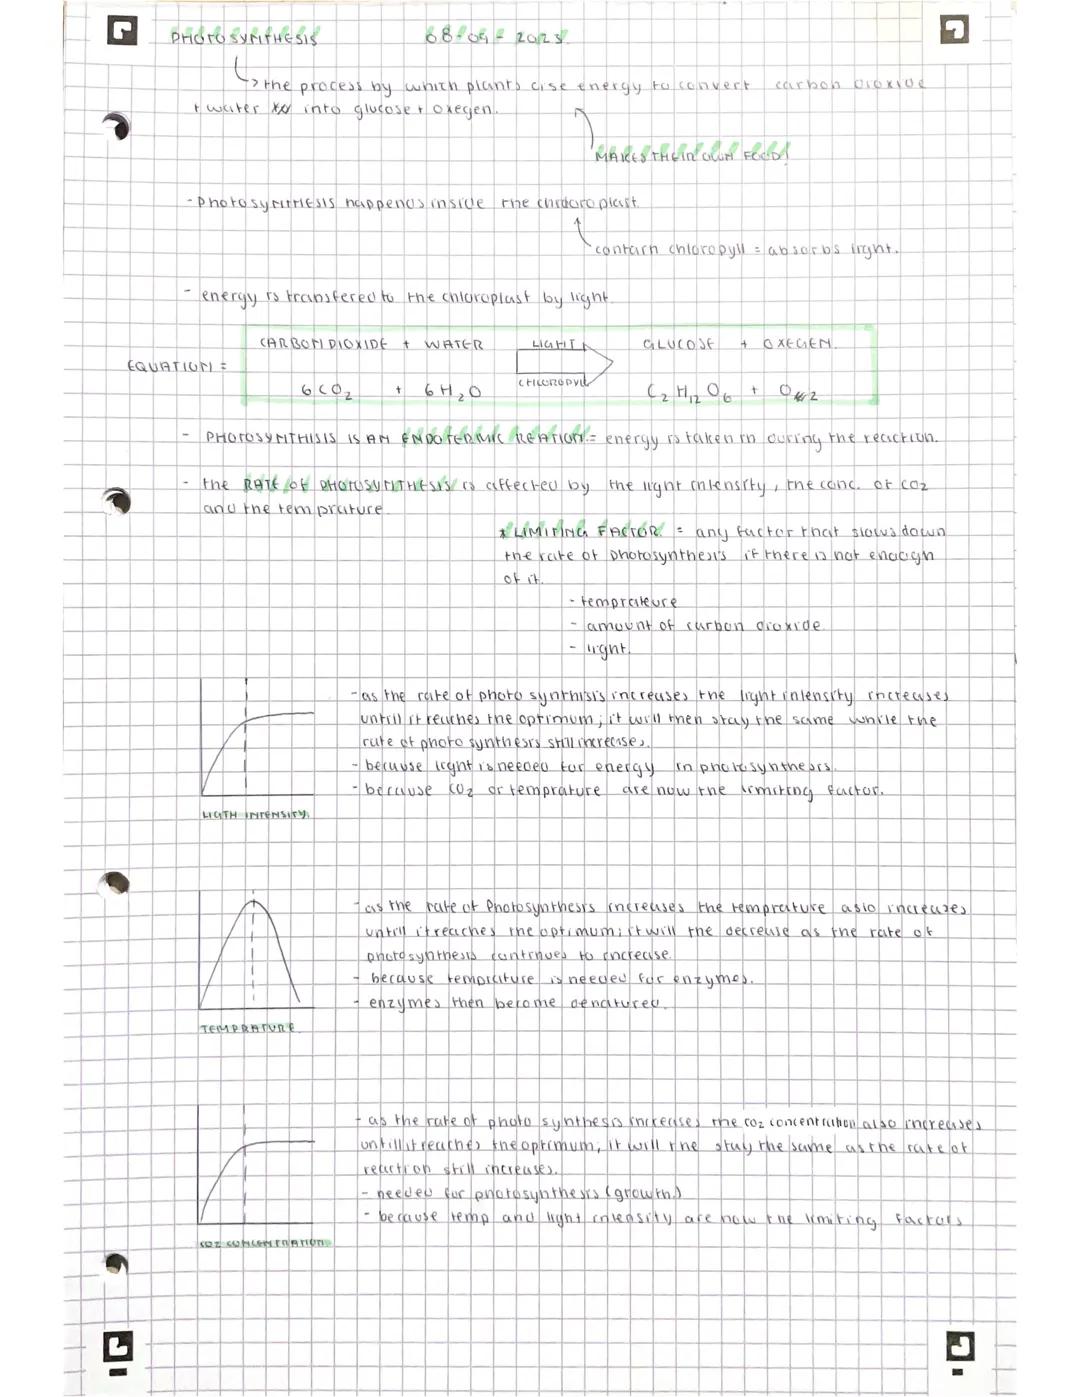 PHOTOSYNTHESIS 08-09-2023
↳ the process by which plants use energy to convert carbon dioxide
+ water into glucose + oxegen.
MAKES THEIR OWN FOOD!
- Photosynthesis happends inside the chroloroplast
contain chloropyll = absorbs light.
- energy is transfered to the chloroplast by light.
CARBON DIOXIDE + WATER LIGHT GLUCOSE + OXEGEN.
EQUATION =
6CO2 + 6H2O CHLOROPYLL C2H12O6 + O2
- PHOTOSYNTHISIS IS AN ENDOTERMIC REATION = energy is taken in during the reaction.
- the RATE OF PHOTOSYNTHESIS is affected by the light intensity, the conc. of CO2
and the temprature.
* LIMITING FACTOR = any factor that slows down
the rate of photosynthesis if there is not enough
of it.
- temprateure
- amount of carbon dioxide
- light.
- as the rate of photo synthisis increases the light intensity increases
untill it reaches the optimum; it will then stay the same while the
rate of photo synthesis still increases.
- because light is needed for energy in photosynthesis.
- because CO2 or temprature are now the limiting factor.
LIGTH INTENSITY.
- as the rate of Photosynthesis increases the temprature aslo increases
untill it reaches the optimum; it will the decrease as the rate of
photosynthesis continues to increase.
- because temprature is needed for enzymes.
- enzymes then become denatured.
TEMPRATURE
- as the rate of photo synthesis increases the CO2 concentration also increases
untill it reaches the optimum; it will the stay the same as the rate of
reaction still increases.
- needed for photosynthesis (growth)
- because temp and light intensity are now the limiting factors
CO2 CONCENTRATION